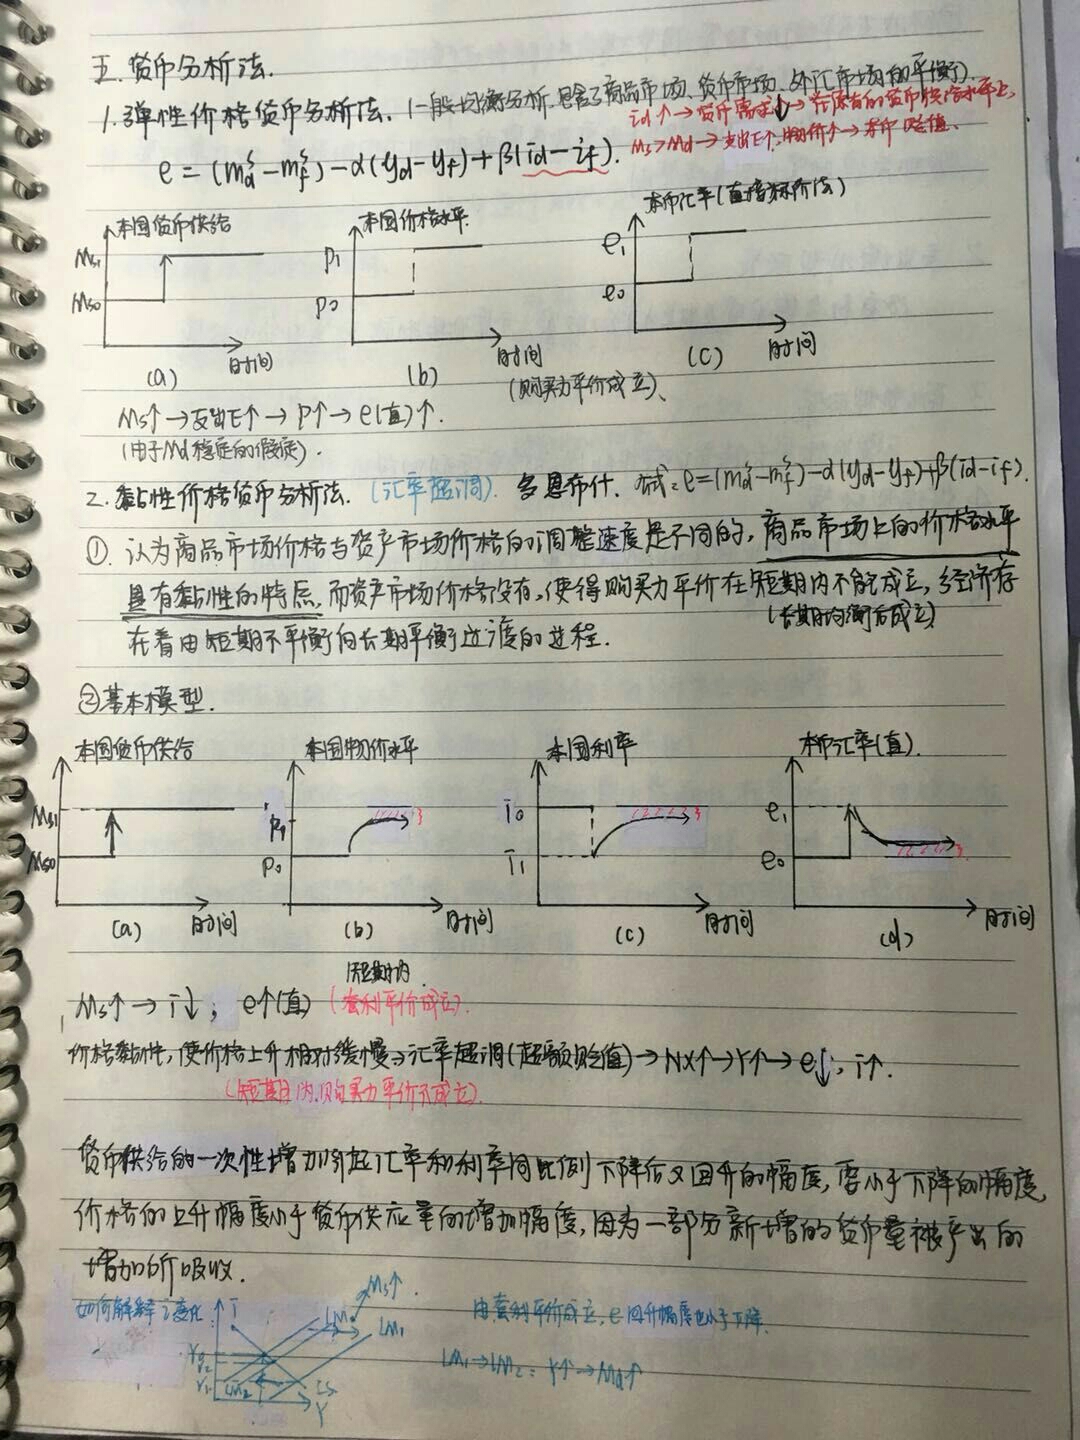 五.货币分析法.
1.弹性价格货币分析法.(一般均衡分析,包含了商品市场、货币市场、外汇市场的平衡).
id↑→货币需求↓→在原有的货币供给水平上,
Ms>Md→支出E↑,物价↑→本币贬值.
e=(m^s_d-m^s_f)-α(yd-yf)+β(id-if).
本国货币供给 本国价格水平 本币汇率(直接标价法)
Ms1 P1 e1
Ms0 P0 e0
时间 时间 时间
(a) (b) (c)
(购买力平价成立)、
Ms↑→支出E↑→P↑→e(直)↑.
(由于Md稳定的假定).
2.黏性价格货币分析法.(汇率超调).多恩布什.公式:e=(m^s_d-m^s_f)-α(yd-yf)+β(id-if).
①.认为商品市场价格与资产市场价格的调整速度是不同的,商品市场上的价格水平
具有黏性的特点,而资产市场价格没有,使得购买力平价在短期内不能成立,经济存
(长期均衡后成立)
在着由短期不平衡向长期平衡过渡的进程.
②基本模型.
本国货币供给 本国物价水平 本国利率 本币汇率(直).
Ms1 P1 i0 e1
Ms0 P0 i1 e0
时间 时间 时间 时间
(a) (b) (c) (d)
短期内.
Ms↑→i↓; e↑(直) (套利平价成立).
价格黏性,使价格上升相对缓慢→汇率超调(超额贬值)→NX↑→Y↑→e↓,i↑.
(短期内,购买力平价不成立).
货币供给的一次性增加引起汇率和利率同比例下降后又回升的幅度,要小于下降的幅度,
价格的上升幅度小于货币供应量的增加幅度,因为一部分新增的货币量被产出的
增加所吸收.
如何解释i变化 i LM Ms↑ LM1
由套利平价成立,e回升幅度也小于下降.
LM2 IS
Y
LM1→LM2:Y↑→Md↑